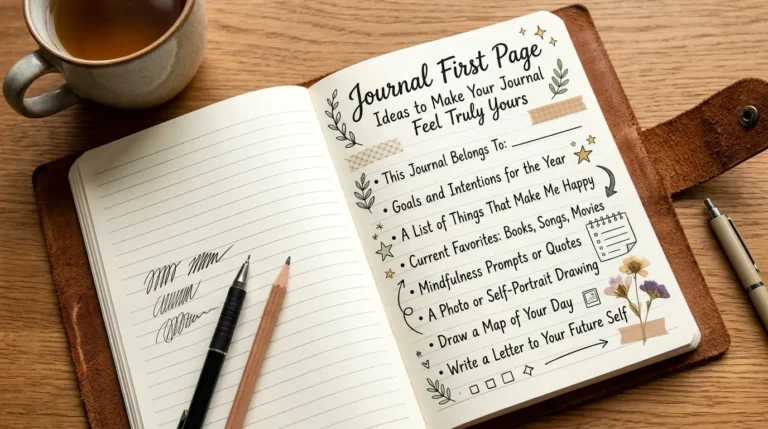 Journal First Page
Ideas to Make Your Journal
Feel Truly Yours
• This Journal Belongs To: ________
• Goals and Intentions for the Year
• A List of Things That Make Me Happy
• Current Favorites: Books, Songs, Movies
• Mindfulness Prompts or Quotes
• A Photo or Self-Portrait Drawing
• Draw a Map of Your Day
• Write a Letter to Your Future Self